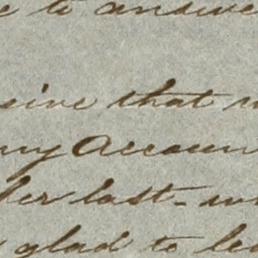 to answe
sire that
my Accoun
her last -
glad to